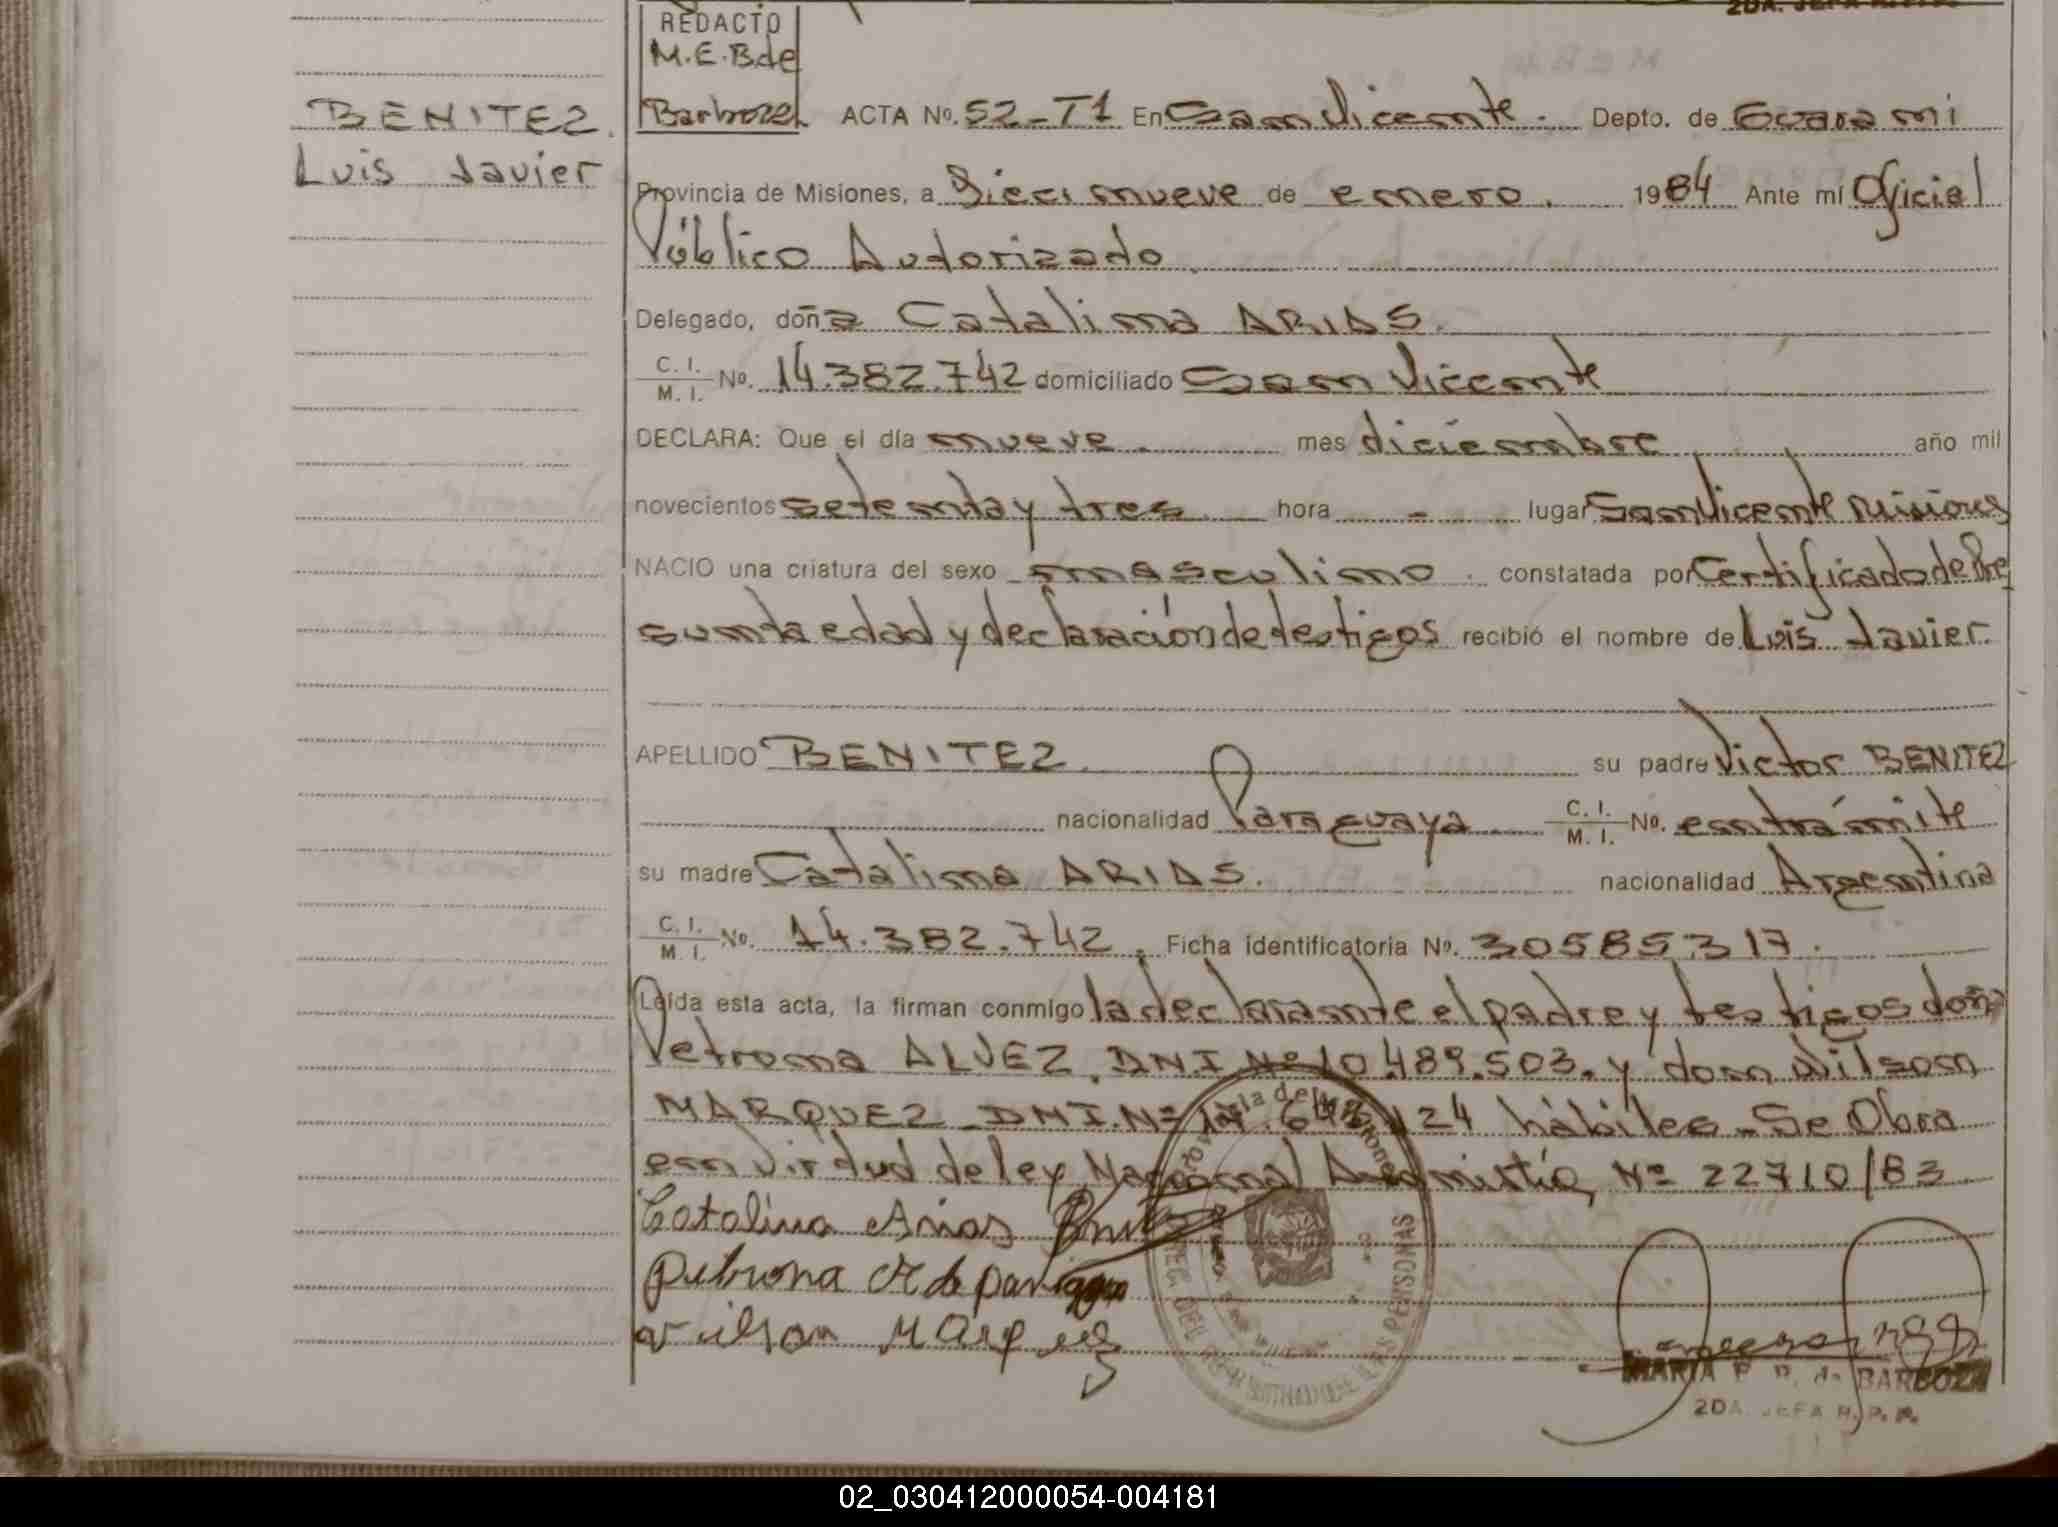 REDACTO
M.E.B.de
Barboza
BENITEZ.
Luis Javier
ACTA Nº. 52-T1 En San Vicente. Depto. de Guarani
Provincia de Misiones, a Diecinueve de enero. 1984 Ante mí Oficial
Público Autorizado
Delegado, doña Catalina ARIAS.
C. I. / M. I. Nº. 14.382.742 domiciliado San Vicente
DECLARA: Que el día nueve mes diciembre año mil
novecientos setenta y tres hora - lugar San Vicente Misiones
NACIO una criatura del sexo masculino. constatada por Certificado de Pre
sunta edad y declaración de testigos recibió el nombre de Luis Javier.
APELLIDO BENITEZ. su padre Victor BENITEZ
nacionalidad Paraguaya C. I. / M. I. Nº. en trámite
su madre Catalina ARIAS. nacionalidad Argentina
C. I. / M. I. Nº. 14.382.742. Ficha identificatoria Nº. 30585317.
Leída esta acta, la firman conmigo la declarante el padre y testigos doña
Petrona ALVEZ. DNI Nº 10.489.503. y don Wilson
MARQUEZ - DNI. Nº 124 hábiles - Se Obra
en virtud de ley Nacional Amnistía Nº 22710/83
Catalina Arias
Petrona A de
Wilson Marquez
MARIA E. B. de BARBOZA
2DA. JEFA R.P.P.
02_030412000054-004181